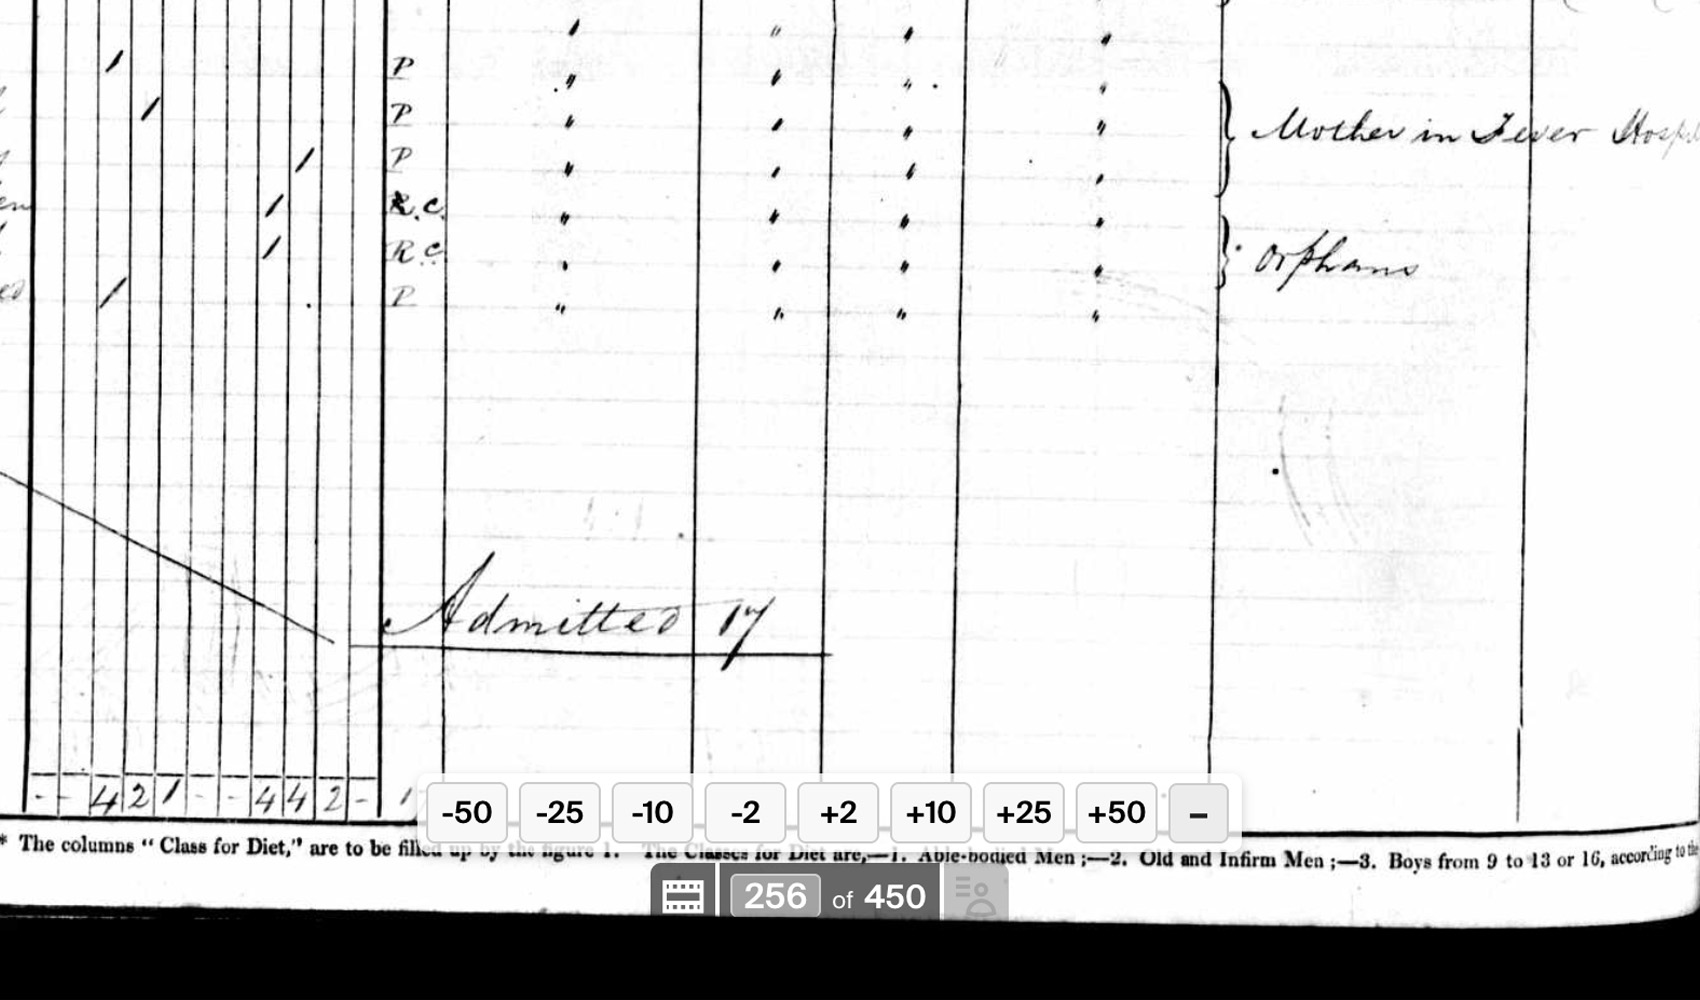 P
P Mother in Fever
P
R.C.
R.C. Orphans
P
Admitted 17
- - 4 2 1 - - 4 4 2 -
-50 -25 -10 -2 +2 +10 +25 +50 –
* The columns “ Class for Diet,” are to be filled up by the figure 1. The Classes for Diet are,—1. Able-bodied Men ;—2. Old and Infirm Men ;—3. Boys from 9 to 13 or 16, according to the
256 of 450